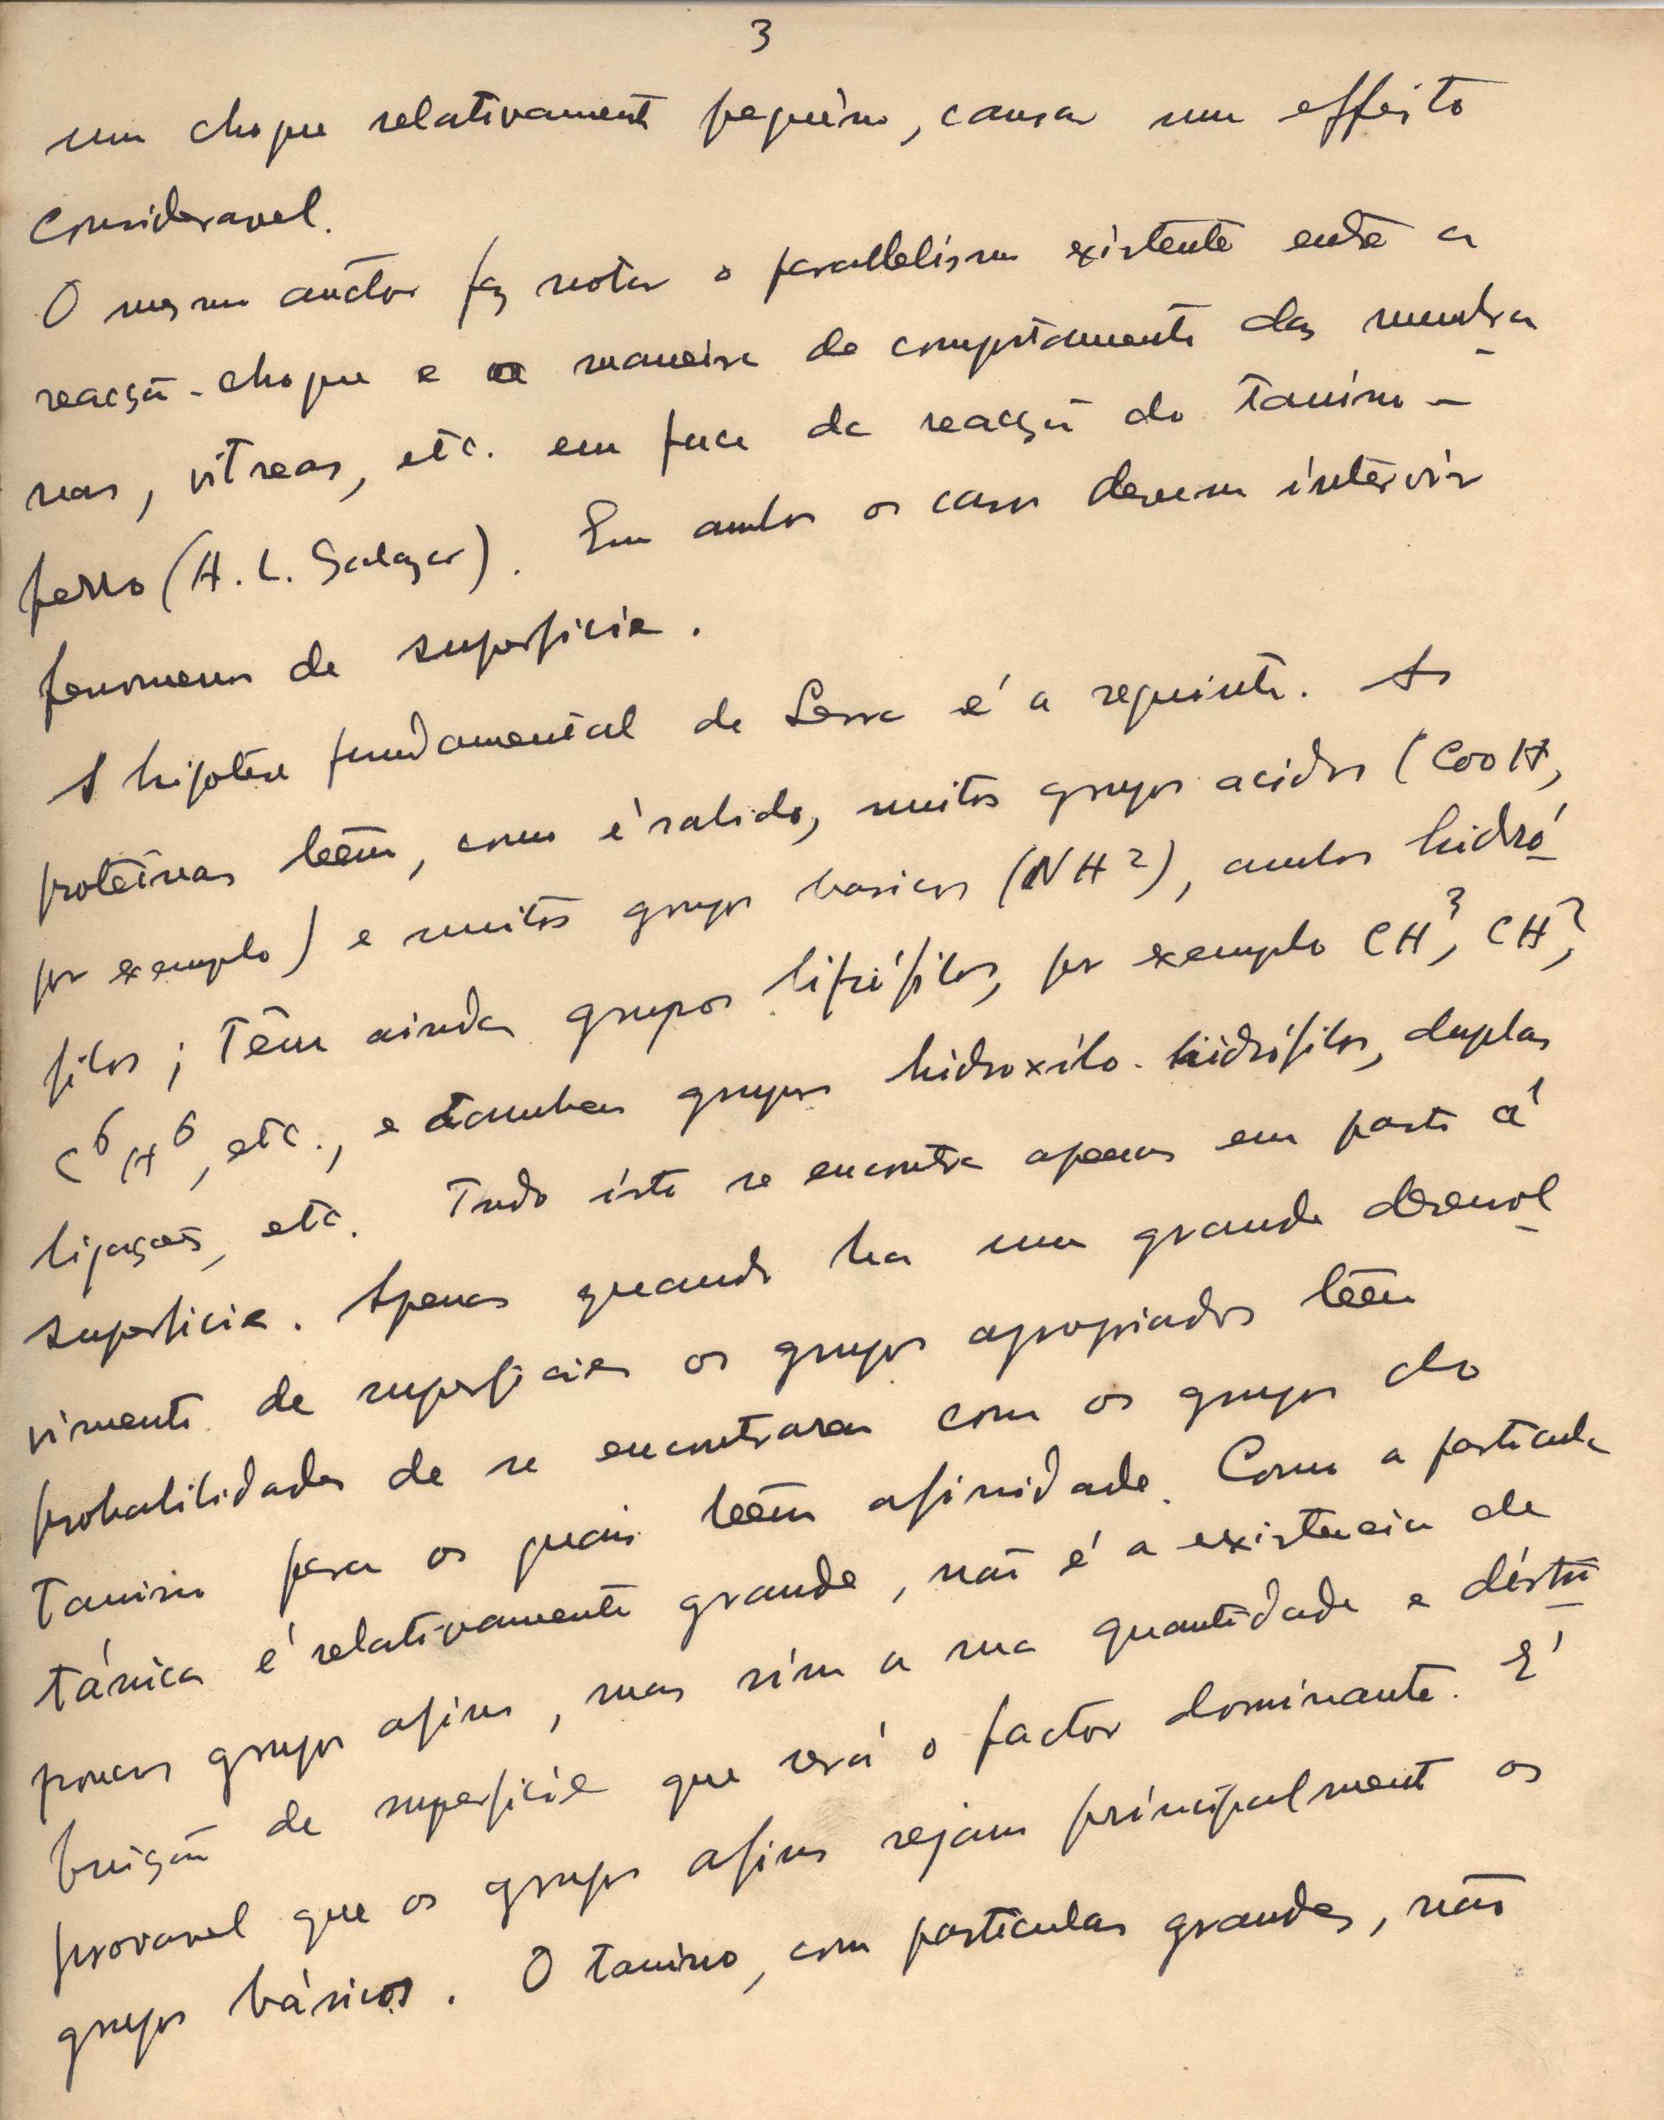 3
um choque relativamente pequeno, causar um effeito
consideravel.
O mesmo auctor faz notar o parallelismo existente entre a
reacção-choque e a maneira de comportamento das membra
nas, vitreas, etc. em face da reacção do tanino-
ferro (A. L. Salazar). Em ambos os casos devem intervir
fenomenos de superficie.
A hipotese fundamental de Serra é a seguinte. As
proteínas teêm, como é sabido, muitos grupos acidos (COOH,
por exemplo) e muitos grupos basicos (NH2), ambos hidró
filos; têm ainda grupos lipófilos, por exemplo CH3, CH2,
C6H6, etc., e tambem grupos hidroxilo-hidrófilos, duplas
ligações, etc. Tudo isto se encontra apenas em parte á
superficie. Apenas quando ha um grande desenvol
vimento de superficies os grupos apropriados teêm
probabilidades de se encontrarem com os grupos do
tanino para os quais teêm afinidade. Como a particula
tánica é relativamente grande, não é a existencia de
poucos grupos afins, mas sim a sua quantidade e distri
buição de superficie que será o factor dominante. É
provavel que os grupos afins sejam principalmente os
grupos básicos. O tanino, com particulas grandes, não